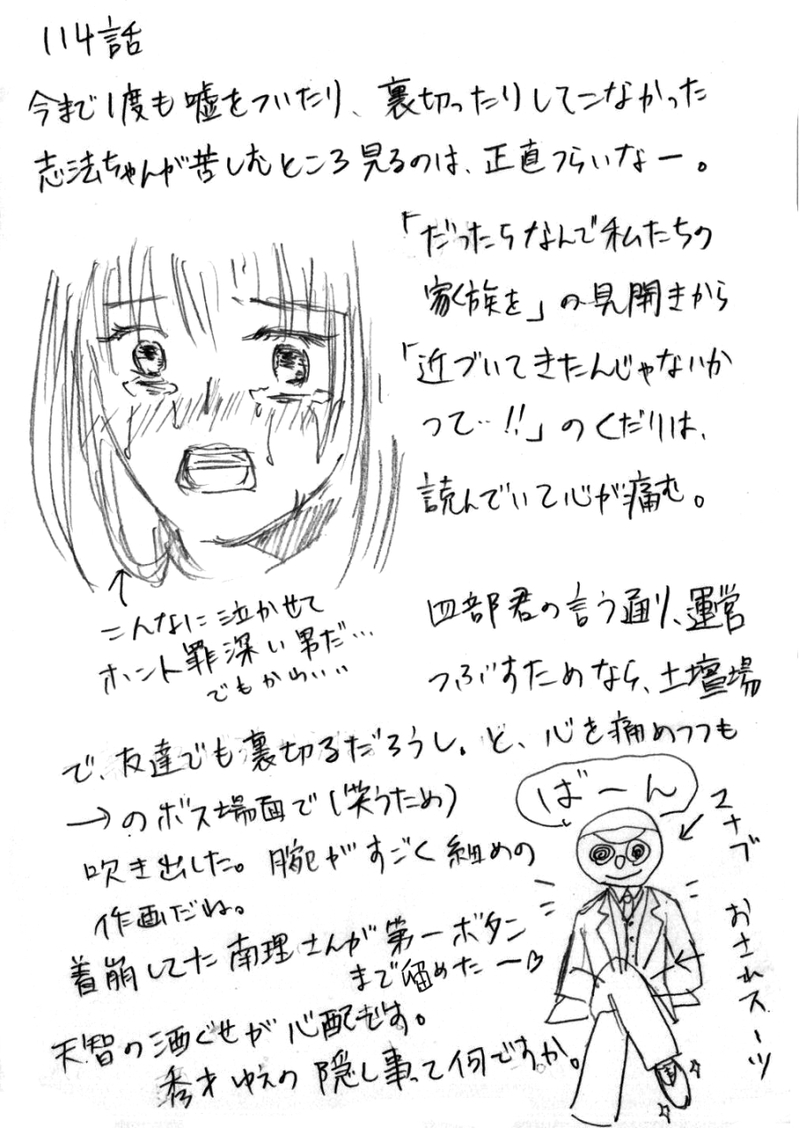 114話
今まで1度も嘘をついたり、裏切ったりしてこなかった
志法ちゃんが苦しむところ見るのは、正直つらいなー。
「だったらなんで私たちの
家族を」の見開きから
「近づいてきたんじゃないか
って…!!」のくだりは、
読んでいて心が痛む。
↑
こんなに泣かせて
ホント罪深い男だ…
でもかわいい
四部君の言う通り、運営
つぶすためなら、土壇場
で、友達でも裏切るだろうし。と、心を痛めつつも
→のボス場面で(笑うため)
吹き出した。腕がすごく組めの
作画だね。
着崩してた南理さんが第一ボタン
まで留めたー
天智の酒ぐせが心配です。
秀才ゆえの隠し事って何ですか。
ばーん
マナブ
おされスーツ